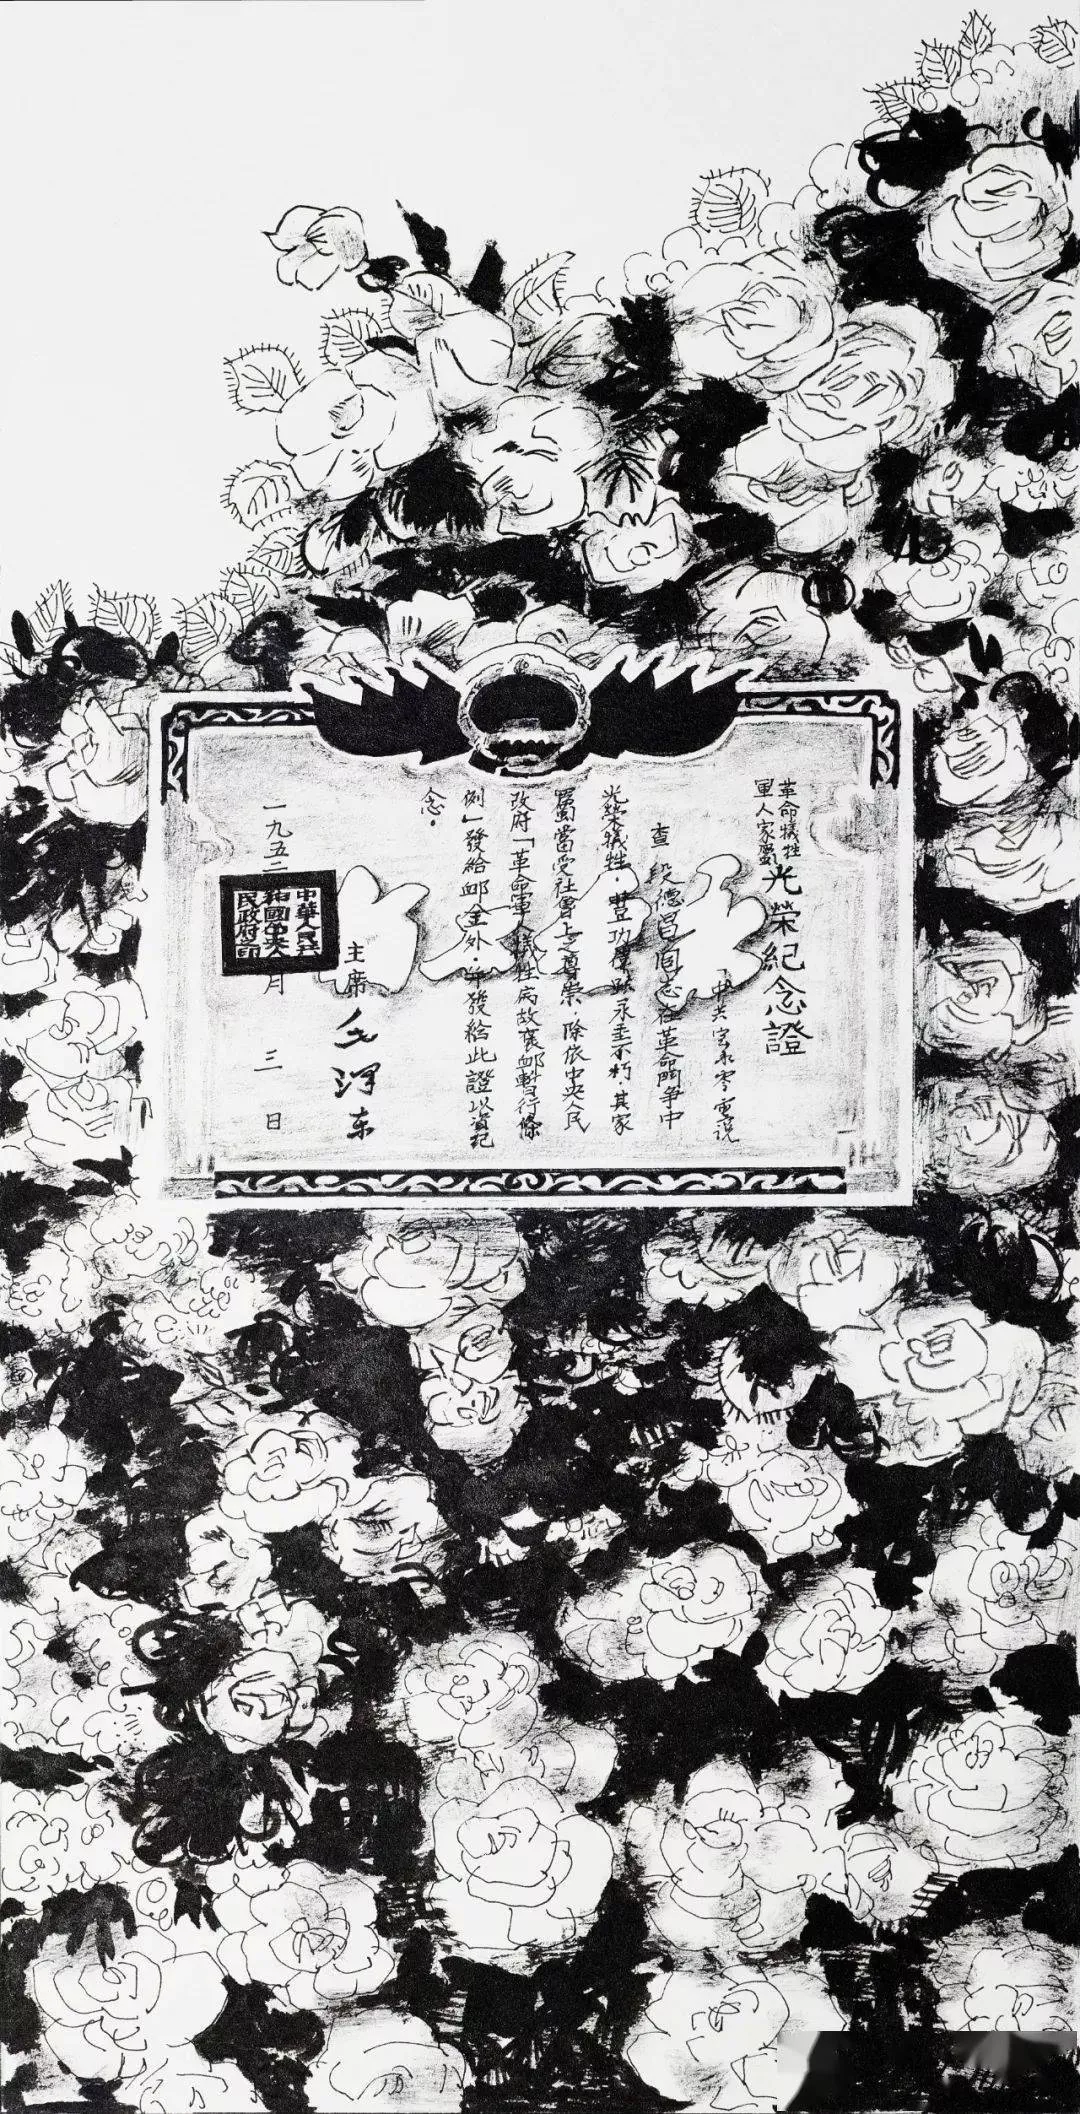 革命犧牲
軍人家屬
光榮紀念證
查段德昌同志在革命鬥爭中
光榮犧牲，豐功偉跡永垂不朽，其家
屬當受社會上之尊崇．除依中央人民
政府「革命軍人犧牲病故褒卹暫行條
例」發給卹金外，并發給此證以資紀
念．
主席 毛澤东
一九五二
月 三 日
中華人民共
和國中央人
民政府之印